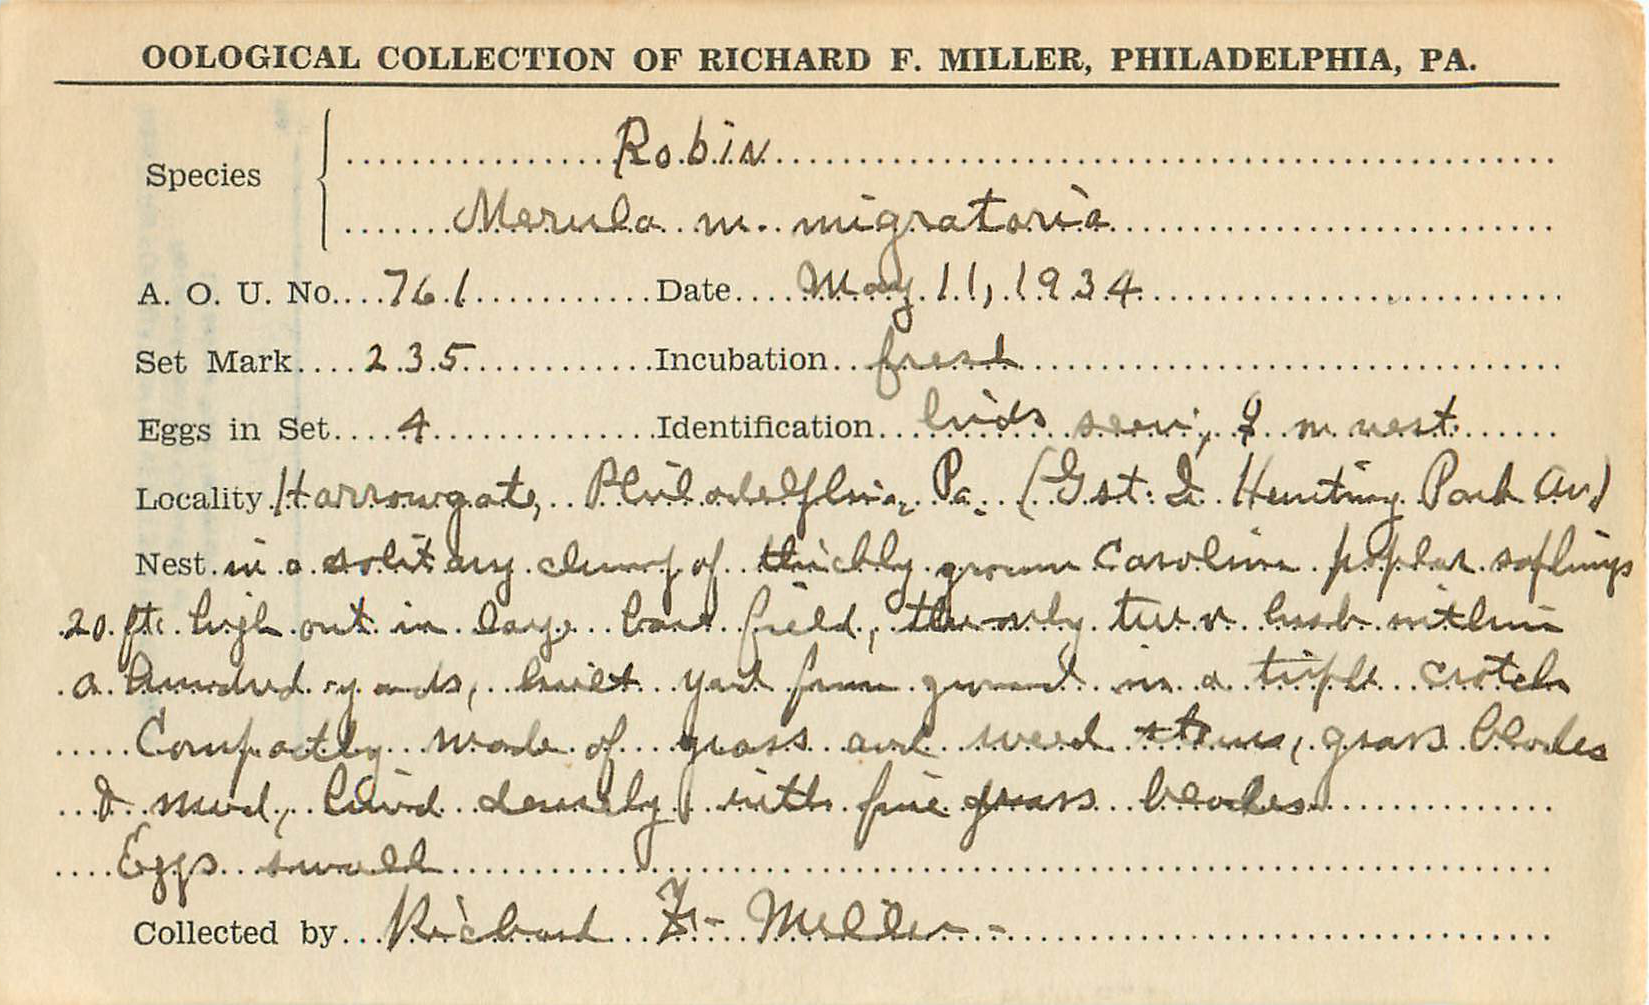 OOLOGICAL COLLECTION OF RICHARD F. MILLER, PHILADELPHIA, PA.
Species
Robin
Merula m. migratoria
A. O. U. No. 761 Date May 11, 1934
Set Mark 235 Incubation fresh
Eggs in Set 4 Identification birds seen, ♀ on nest
Locality Harrowgate, Philadelphia, Pa. (G st. & Hunting Park Av)
Nest in a solitary clump of thickly grown Carolina poplar saplings
20 ft. high out in large bare field, the only tree or bush within
a hundred yards, built yard from ground in a triple crotch
Compactly made of grass and weed stems, grass blades
& mud, lined densely with fine grass blades
Eggs small
Collected by Richard F. Miller